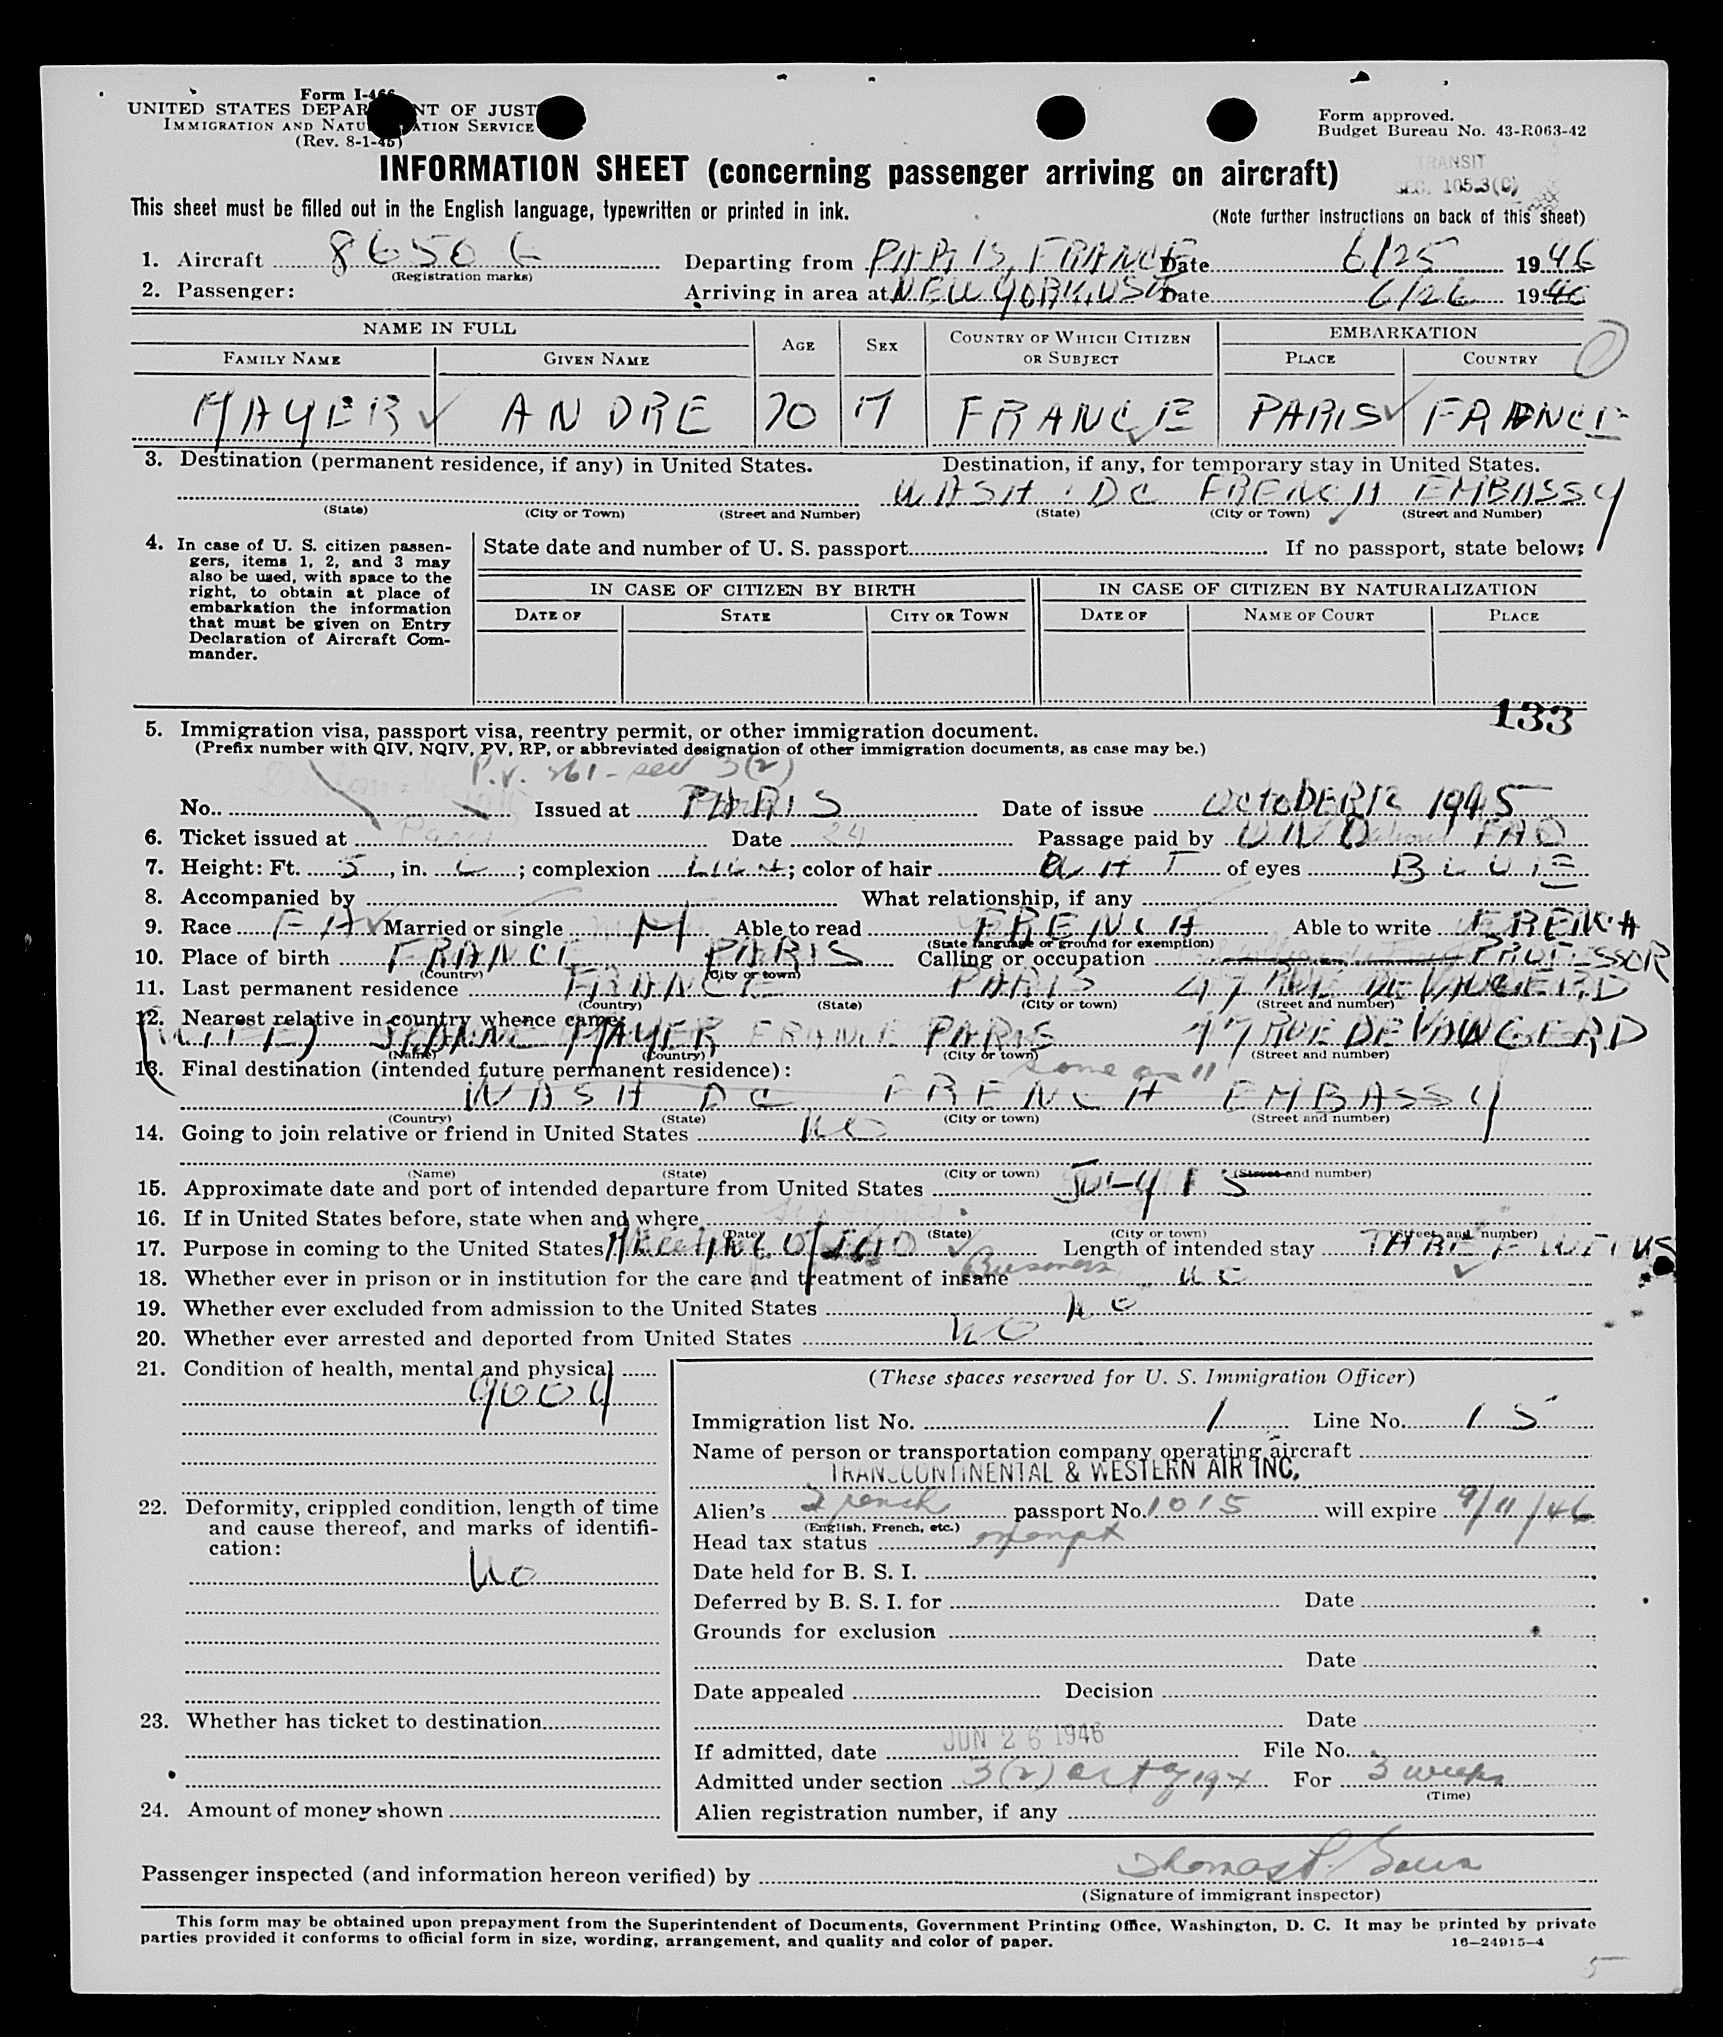 Form I-466
UNITED STATES DEPARTMENT OF JUSTICE
IMMIGRATION AND NATURALIZATION SERVICE
(Rev. 8-1-45)
Form approved.
Budget Bureau No. 43-R063-42
INFORMATION SHEET (concerning passenger arriving on aircraft)
TRANSIT
SEC. 105.3(C)
This sheet must be filled out in the English language, typewritten or printed in ink.
(Note further instructions on back of this sheet)
1. Aircraft 86506 Departing from PARIS, FRANCE Date 6/25 1946
(Registration marks)
2. Passenger: Arriving in area at NEW YORK, USA Date 6/26 1946
NAME IN FULL AGE SEX COUNTRY OF WHICH CITIZEN OR SUBJECT EMBARKATION
FAMILY NAME GIVEN NAME PLACE COUNTRY
MAYER ANDRE 70 M FRANCE PARIS FRANCE
3. Destination (permanent residence, if any) in United States. Destination, if any, for temporary stay in United States.
WASH. DC FRENCH EMBASSY
(State) (City or Town) (Street and Number) (State) (City or Town) (Street and Number)
4. In case of U. S. citizen passen-
gers, items 1, 2, and 3 may
also be used, with space to the
right, to obtain at place of
embarkation the information
that must be given on Entry
Declaration of Aircraft Com-
mander.
State date and number of U. S. passport If no passport, state below:
IN CASE OF CITIZEN BY BIRTH IN CASE OF CITIZEN BY NATURALIZATION
DATE OF STATE CITY OR TOWN DATE OF NAME OF COURT PLACE
133
5. Immigration visa, passport visa, reentry permit, or other immigration document.
(Prefix number with QIV, NQIV, PV, RP, or abbreviated designation of other immigration documents, as case may be.)
P.V. 261 - sec 3(2)
No. Issued at PARIS Date of issue OCTOBER 12 1945
6. Ticket issued at Paris Date 24 Passage paid by FAO
7. Height: Ft. 5, in. 6; complexion LIGH; color of hair WHT of eyes BLUE
8. Accompanied by What relationship, if any
9. Race Married or single M Able to read FRENCH Able to write FRENCH
(State language or ground for exemption)
10. Place of birth FRANCE PARIS Calling or occupation PROFESSOR
(Country) (City or town)
11. Last permanent residence FRANCE PARIS 47 RUE DE VAUGERD
(Country) (State) (City or town) (Street and number)
12. Nearest relative in country whence came:
(WIFE) JEANNE MAYER FRANCE PARIS 47 RUE DE VAUGERD
(Name) (Country) (City or town) (Street and number)
13. Final destination (intended future permanent residence): same as 11
WASH DC FRENCH EMBASSY
(Country) (State) (City or town) (Street and number)
14. Going to join relative or friend in United States NO
(Name) (State) (City or town) (Street and number)
15. Approximate date and port of intended departure from United States JULY 15
16. If in United States before, state when and where
(Date) (State) (City or town) (Street and number)
17. Purpose in coming to the United States MEETING OF FAO Length of intended stay THREE WEEKS
Business
18. Whether ever in prison or in institution for the care and treatment of insane NO
19. Whether ever excluded from admission to the United States NO
20. Whether ever arrested and deported from United States NO
21. Condition of health, mental and physical
good
22. Deformity, crippled condition, length of time
and cause thereof, and marks of identifi-
cation:
No
23. Whether has ticket to destination
24. Amount of money shown
(These spaces reserved for U. S. Immigration Officer)
Immigration list No. 1 Line No. 15
Name of person or transportation company operating aircraft
TRANSCONTINENTAL & WESTERN AIR INC.
Alien's French passport No. 1015 will expire 9/11/46
(English, French, etc.)
Head tax status exempt
Date held for B. S. I.
Deferred by B. S. I. for Date
Grounds for exclusion
Date
Date appealed Decision
Date
If admitted, date JUN 26 1946 File No.
Admitted under section 3(2) act of 1924 For 3 weeks
(Time)
Alien registration number, if any
Passenger inspected (and information hereon verified) by Thomas P.
(Signature of immigrant inspector)
This form may be obtained upon prepayment from the Superintendent of Documents, Government Printing Office, Washington, D. C. It may be printed by private
parties provided it conforms to official form in size, wording, arrangement, and quality and color of paper.
16—24915-4
5